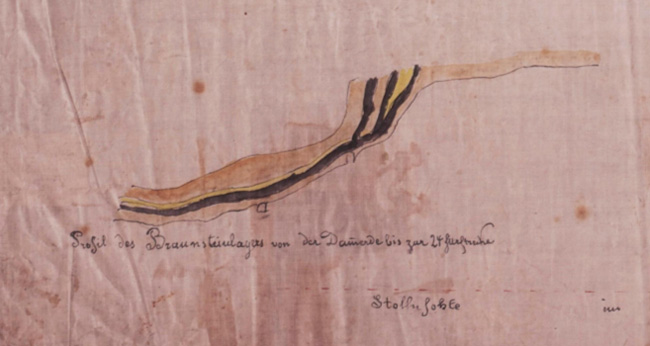 Profil des Braunsteinlagers von der Dam̄erde bis zur
Stolln Sohle